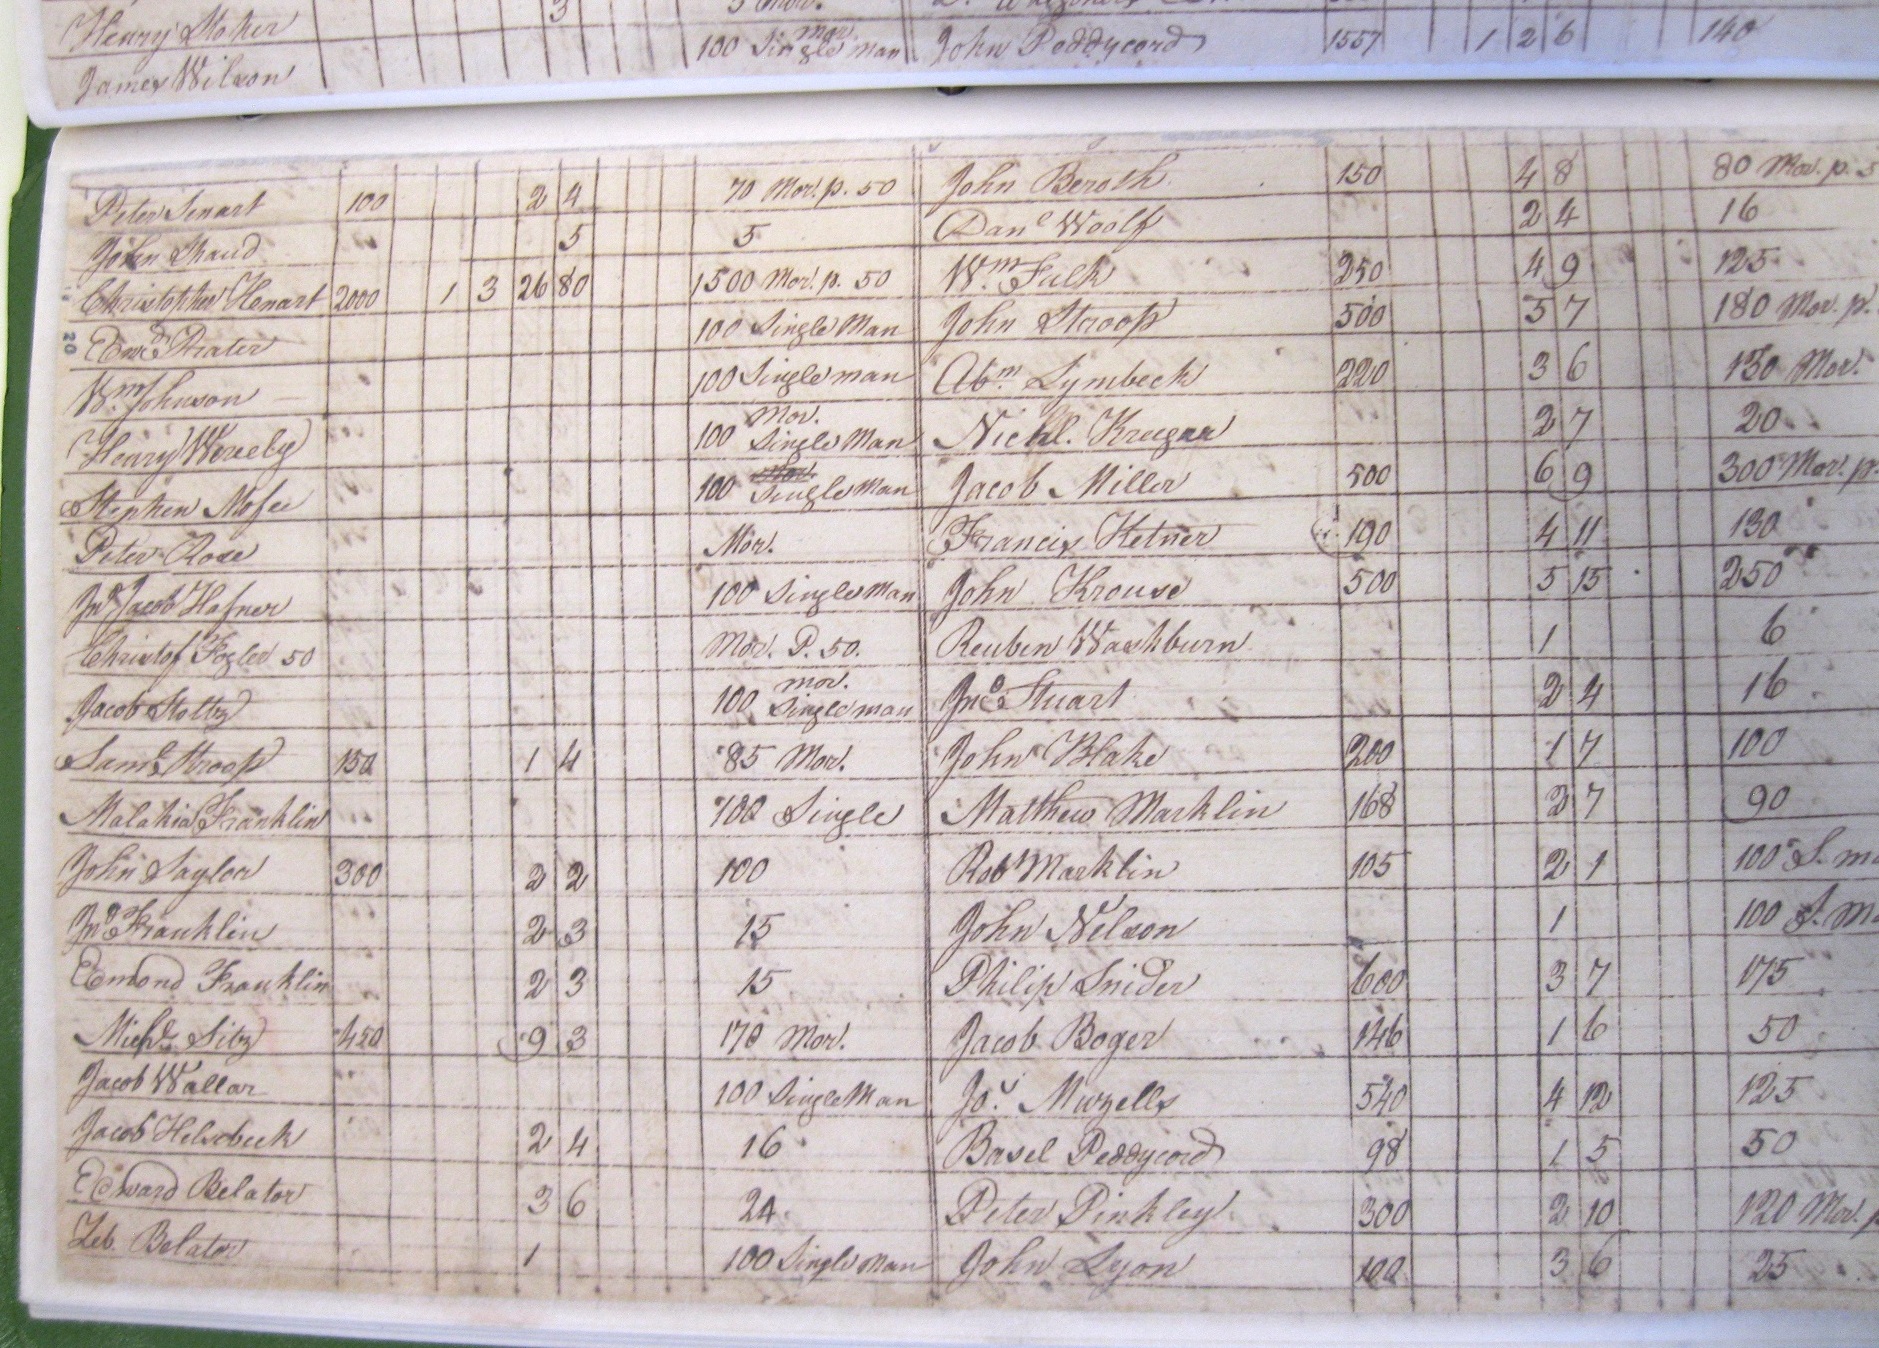 Henry Stoker 3
James Wilson 100 mor. Single man John Peddycord 1557 1 2 6 140
Peter Senart 100 2 4 70 Mor. p. 50 John Beroth 150 4 8 80 Mor. p. 5
John Shaud 5 5 Danl Woolf 2 4 16
Christopher Henart 2000 1 3 26 80 1500 Mor. p. 50 Wm. Fulk 250 4 9 125
Edwd Prater 100 Single Man John Stroop 500 5 7 180 Mor. p.
Wm. Johnson 100 Single man Abm. Lymbeck 220 3 6 130 Mor.
Henry 100 Mor. Single Man Nichl. Kreegar 2 7 20
Stephen 100 Mor. Single Man Jacob Miller 500 6 9 300 Mor. p.
Peter Rose Mor. Francis Ketner 190 4 11 130
Jno Jacob Hafner 100 Single Man John Krouse 500 5 15 250
Christof Fogler 50 Mor. P. 50. Reuben Washburn 1 6
Jacob Stoltz 100 mor. Single man Jno. Stuart 2 4 16
Saml. Stroop 150 1 4 85 Mor. John Blake 200 1 7 100
Malakia Franklin 100 Single Matthew Marklin 168 2 7 90
John Saylor 300 2 2 100 Rob Marklin 105 2 1 100 S. ma
Jno. Franklin 2 3 15 John Nelson 1 100 S. Ma
Edmond Franklin 2 3 15 Philip Snider 600 3 7 175
Michl. Sitz 450 9 3 170 Mor. Jacob Boger 146 1 6 50
Jacob Wallar 100 Single Man Jos. Muzells 540 4 12 125
Jacob Helsebeck 2 4 16 Basel Peddycord 98 1 5 50
Edward Belator 3 6 24 Peter Pinkley 300 2 10 120 Mor. p
Zeb. Belator 1 100 Single Man John Lyon 100 3 6 25
20